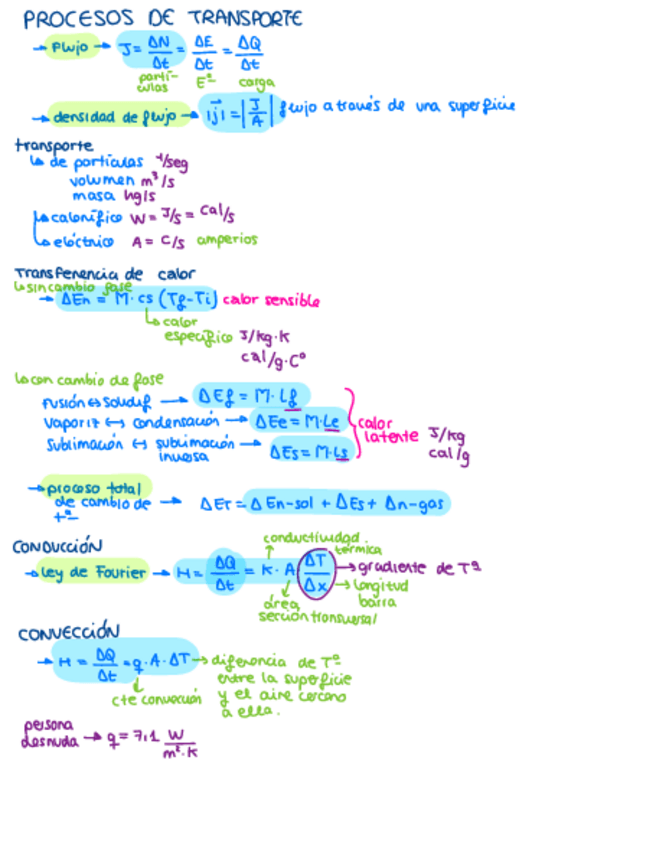 PROCESOS DE TRANSPORTE
→ Flujo → J = ΔN/Δt = ΔE/Δt = ΔQ/Δt
partí-culas Eª carga
→ densidad de flujo → |j⃗| = |J/A| flujo a través de una superficie
transporte
↳ de partículas 1/seg
volumen m³/s
masa kg/s
↳ calorífico W = J/s = cal/s
↳ eléctrico A = C/s amperios
Transferencia de calor
↳ sin cambio fase
→ ΔEn = M · cs (Tf - Ti) calor sensible
↳ calor
específico J/kg·K
cal/g·Cº
↳ con cambio de fase
Fusión ↔ solidif → ΔEf = M · Lf
vaporiz ↔ condensación → ΔEe = M · Le
Sublimación ↔ sublimación inversa → ΔEs = M · Ls
calor latente J/kg
cal/g
→ proceso total
de cambio de → ΔET = ΔEn-sol + ΔEs + Δn-gas
tª
CONDUCCIÓN
conductividad térmica
→ Ley de Fourier → H = ΔQ/Δt = K · A (ΔT/Δx) → gradiente de Tª
→ longitud barra
área sección transversal
CONVECCIÓN
→ H = ΔQ/Δt = q · A · ΔT → diferencia de Tª
entre la superficie
cte convección y el aire cercano
a ella.
persona
desnuda → q = 7,1 W/m²·K